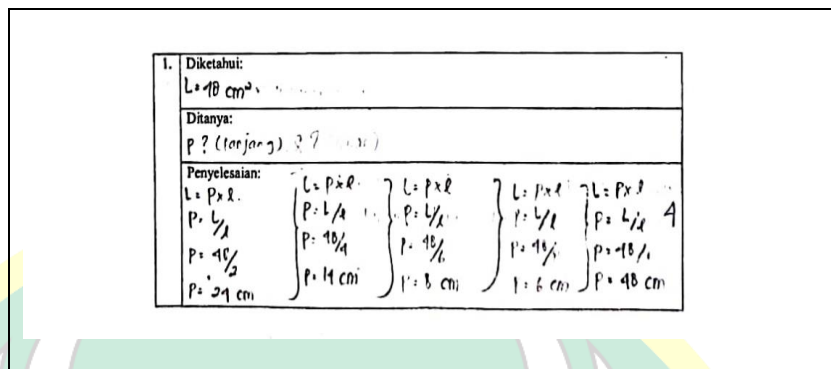 1. Diketahui:
L=48 cm².
Ditanya:
p? (panjang)
Penyelesaian:
L= P x l.
P= L/l
P= 48/2
P= 24 cm
L= p x l.
P= L/l
P= 48/4
P= 14 cm
L= p x l
P= L/l
P= 48/
P= 8 cm
L= P x l
P= L/l
P= 48/
P= 6 cm
L= P x l
P= L/l
P= 48/1
P= 48 cm
4